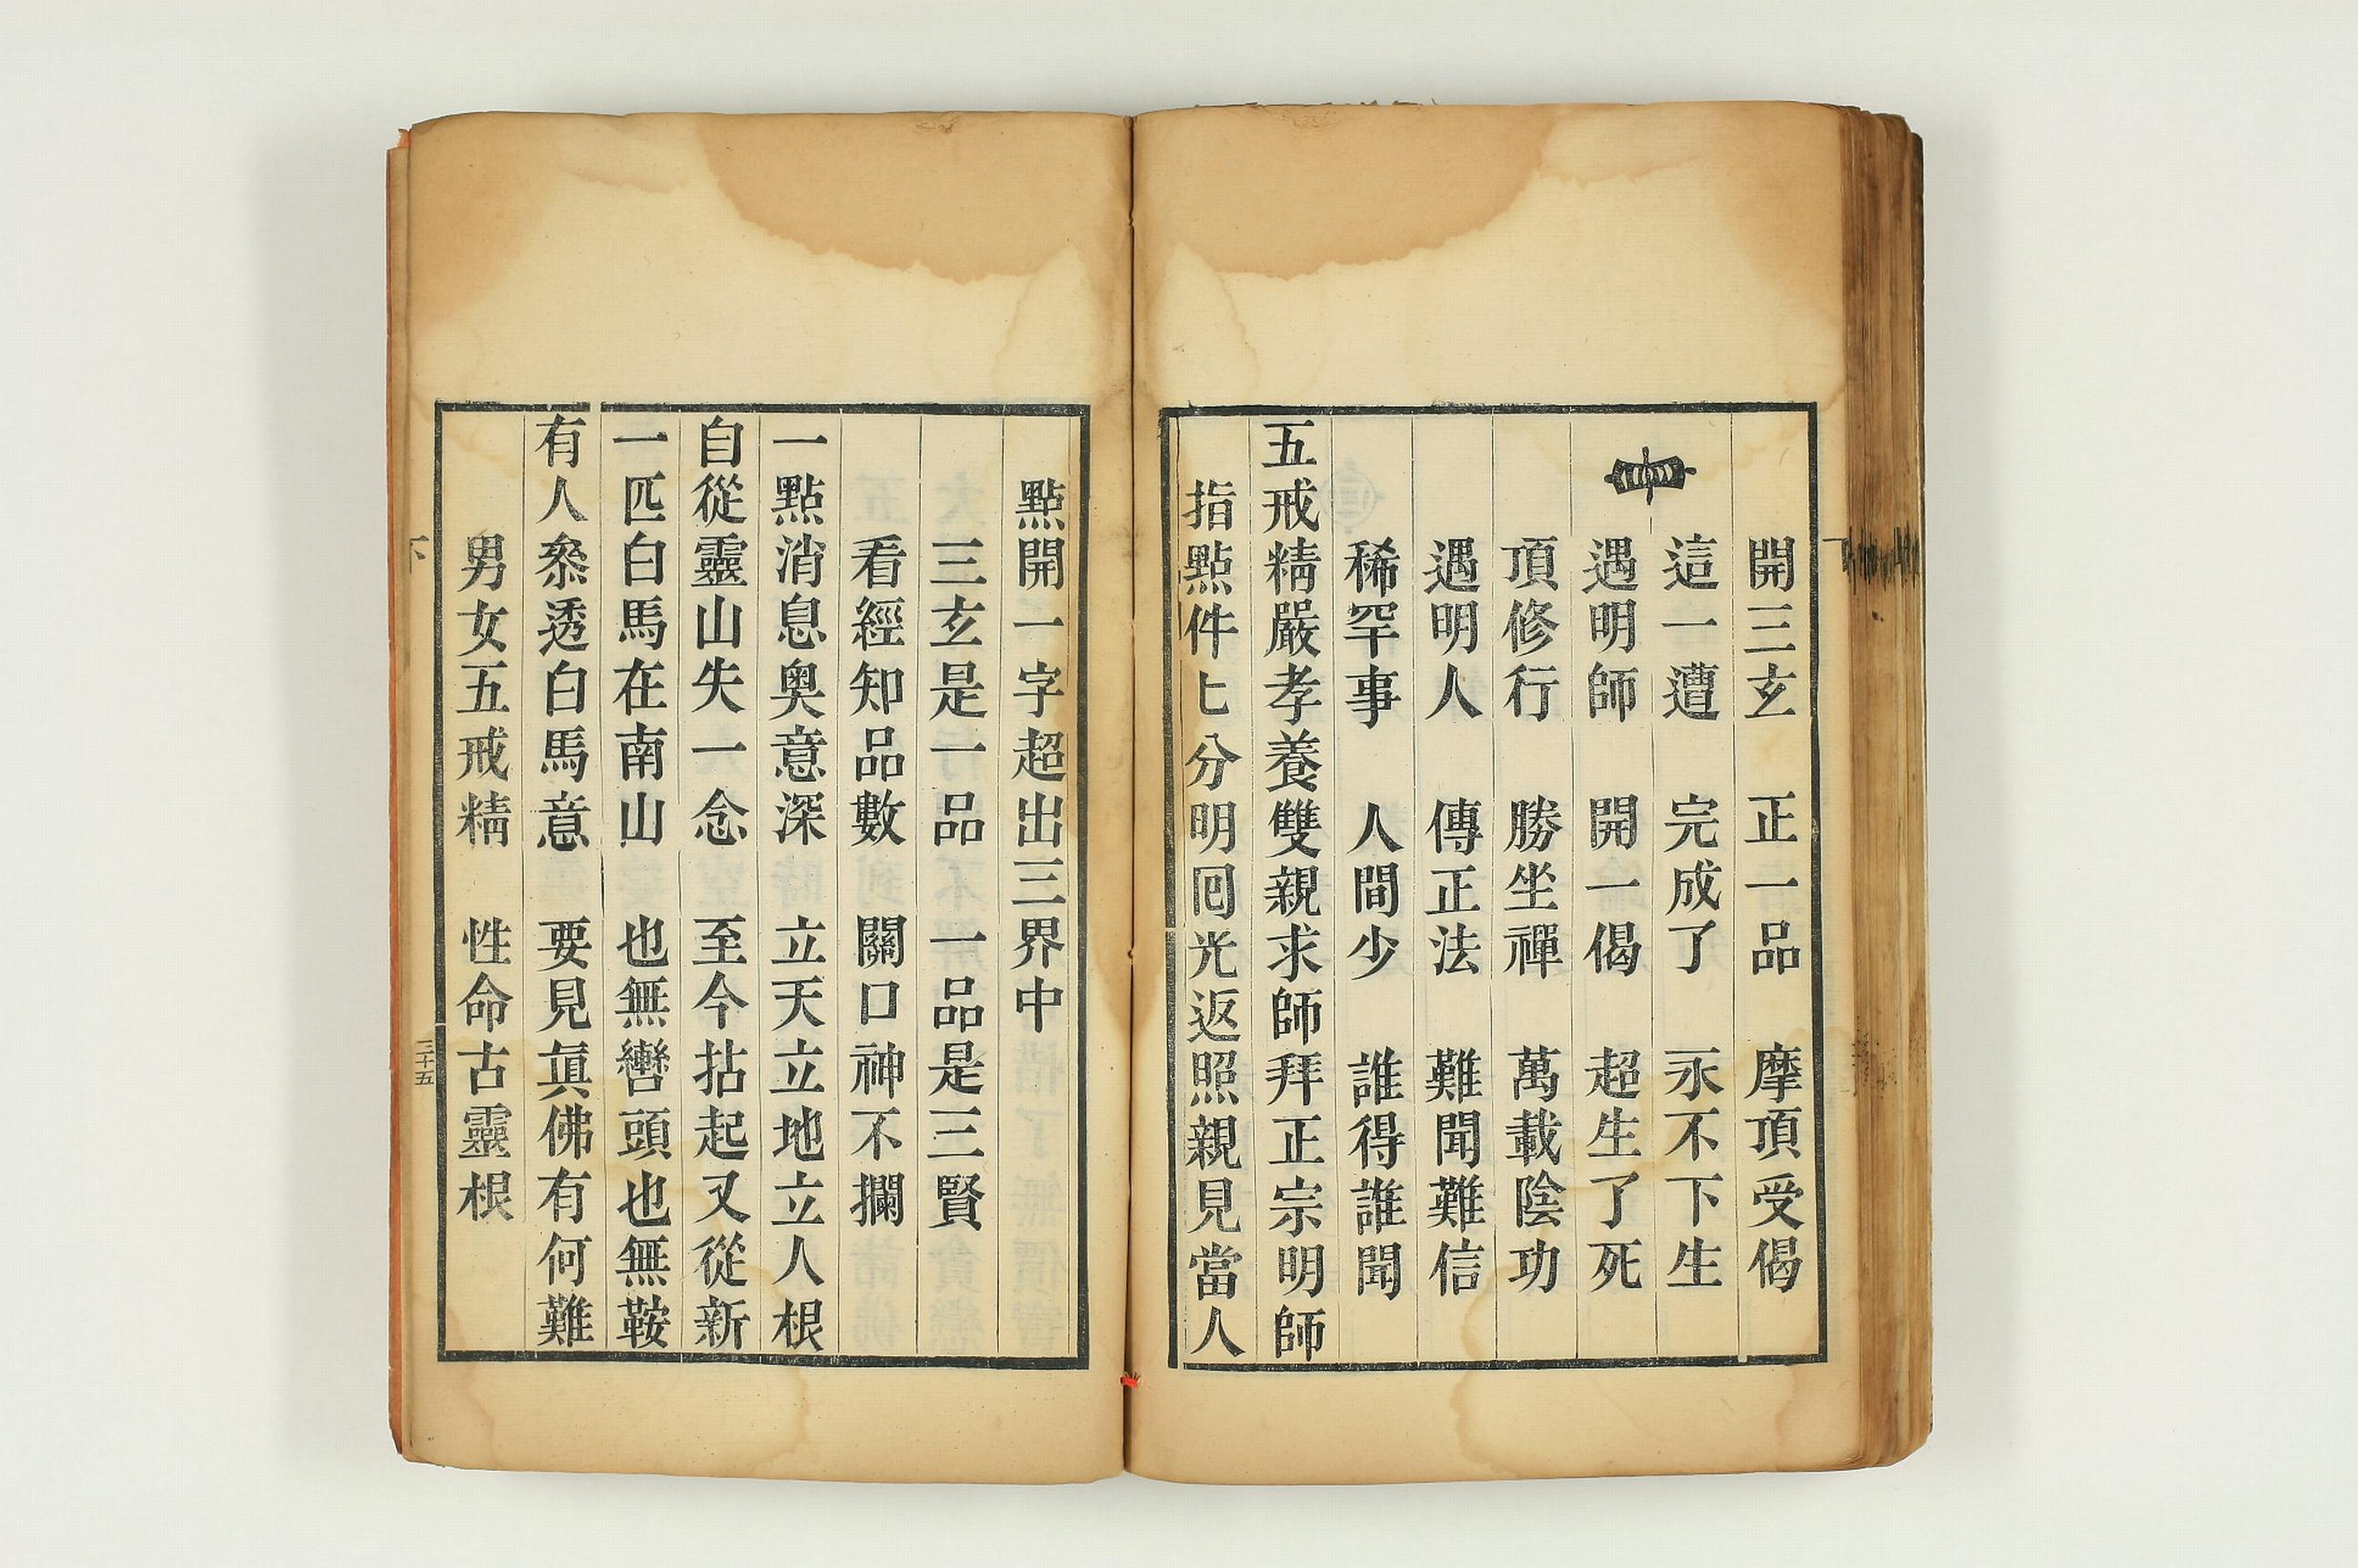 開三玄　正一品　摩頂受偈
這一遭　完成了　永不下生
遇明師　開一偈　超生了死
頂修行　勝坐禪　萬載陰功
遇明人　傳正法　難聞難信
稀罕事　人間少　誰得誰聞
五戒精嚴孝養雙親求師拜正宗明師
指點件七分明囘光返照親見當人
點開一字超出三界中
三玄是一品　一品是三賢
看經知品數　關口神不攔
一點消息奧意深　立天立地立人根
自從靈山失一念　至今拈起又從新
一匹白馬在南山　也無轡頭也無鞍
有人叅透白馬意　要見眞佛有何難
男女五戒精　性命古靈根
下
三十五